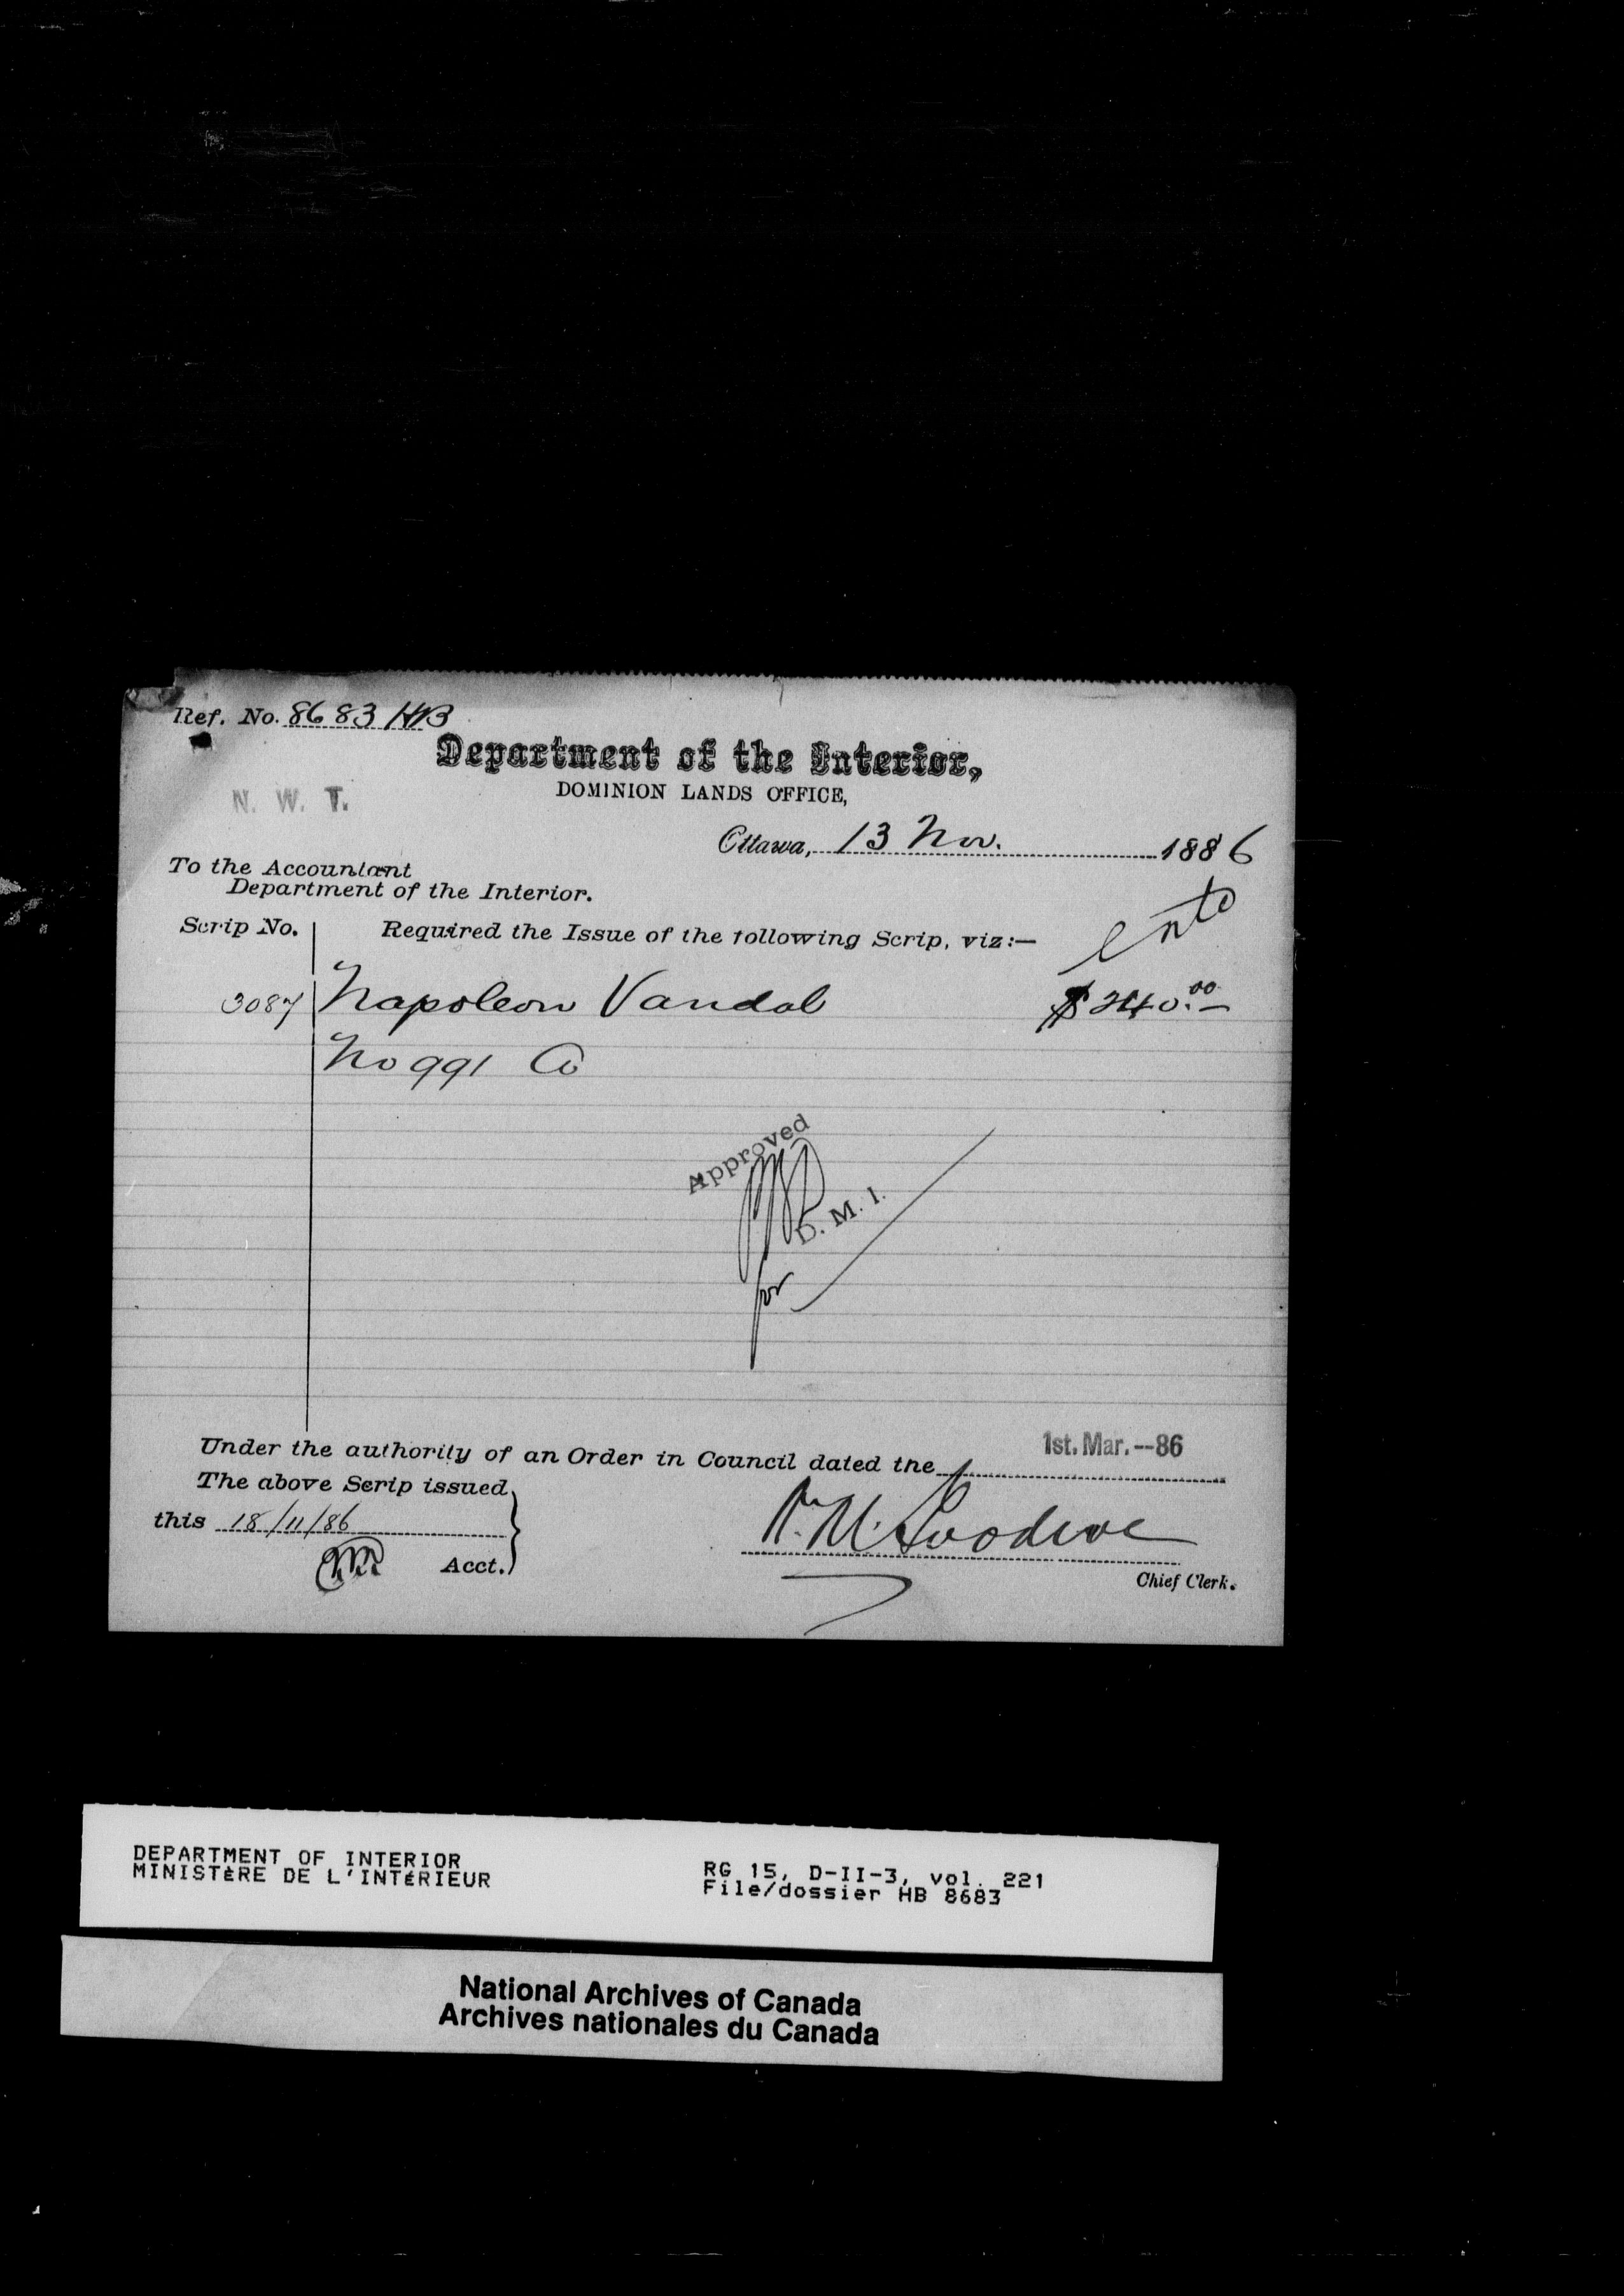 Ref. No. 8683 HB
Department of the Interior,
DOMINION LANDS OFFICE,
N. W. T.
Ottawa, 13 Nov. 1886
To the Accountant
Department of the Interior.
Scrip No. Required the Issue of the following Scrip, viz:—
3087 Napoleon Vandal $240.00
No 991
Approved
D. M. I.
for
Under the authority of an Order in Council dated the 1st. Mar.--86
The above Scrip issued
this 18/11/86
Acct.
Chief Clerk.
DEPARTMENT OF INTERIOR
MINISTÈRE DE L'INTÉRIEUR
RG 15, D-II-3, vol. 221
File/dossier HB 8683
National Archives of Canada
Archives nationales du Canada